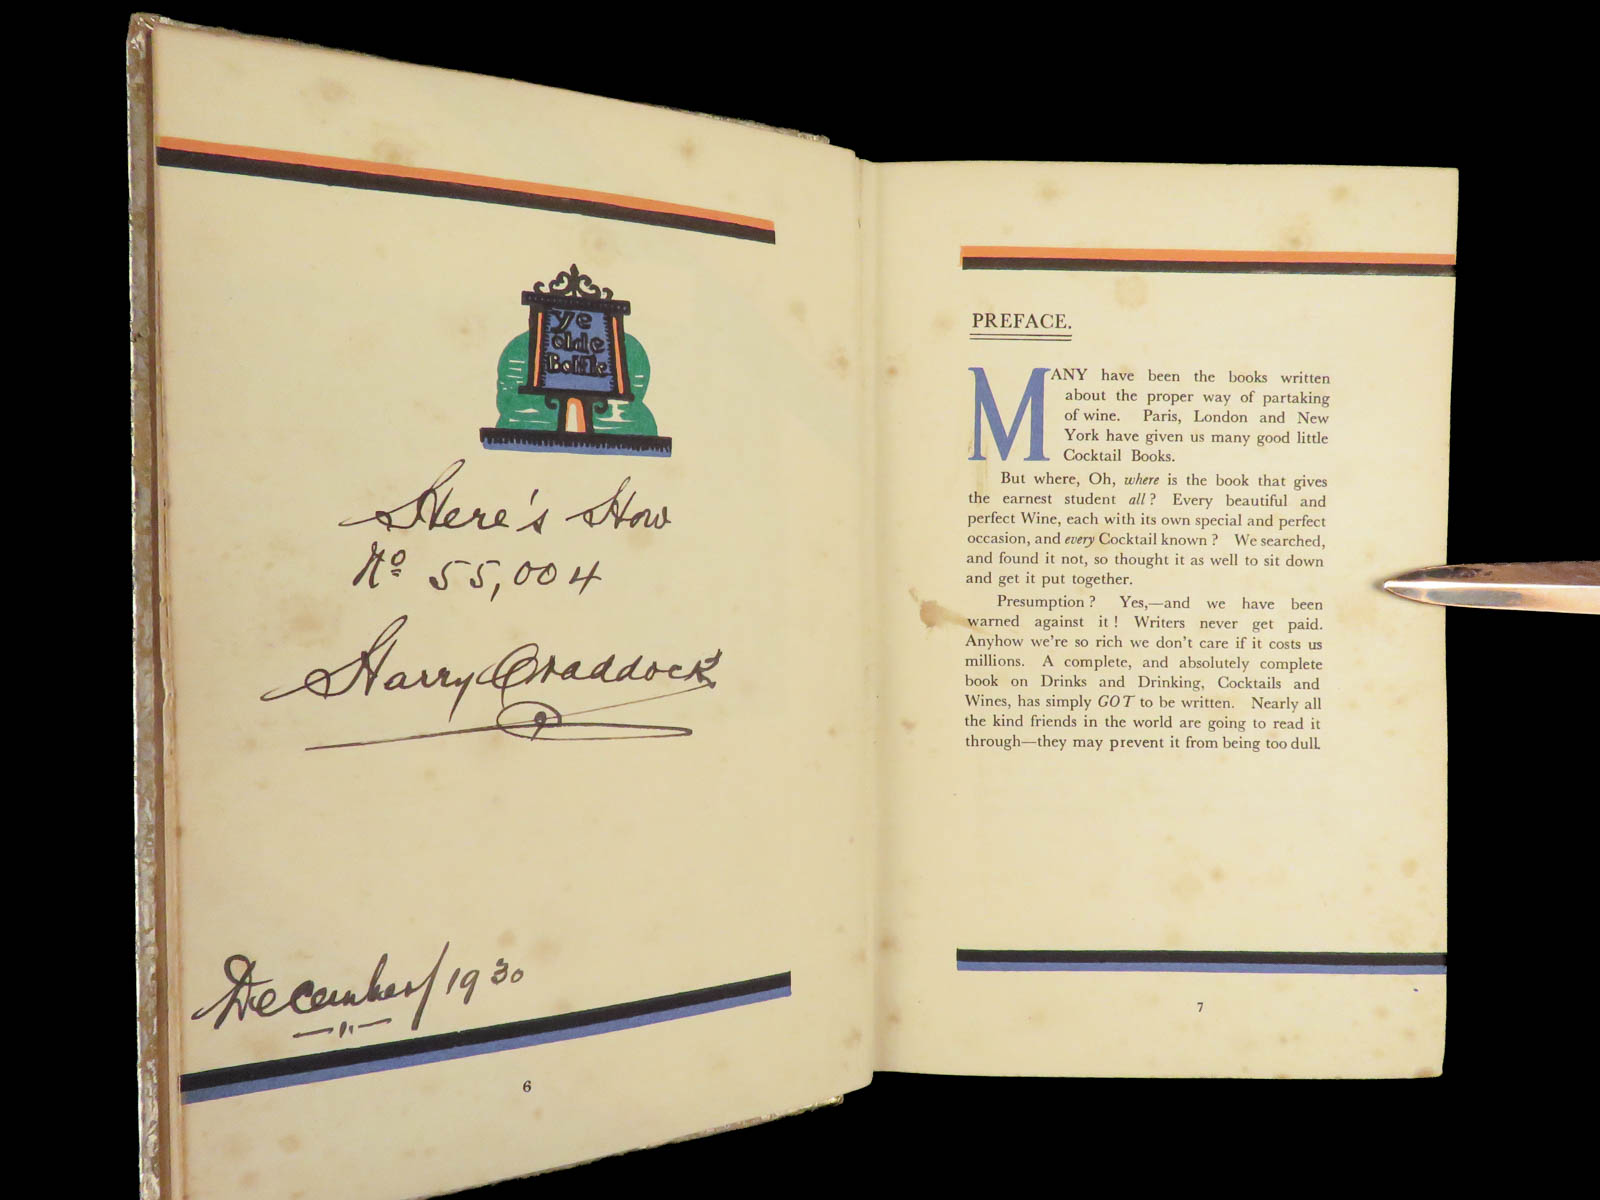 ye
olde
Bottle
Here's How
Nº 55,004
Harry Craddock
December/1930
6
PREFACE.
MANY have been the books written
about the proper way of partaking
of wine. Paris, London and New
York have given us many good little
Cocktail Books.
But where, Oh, where is the book that gives
the earnest student all? Every beautiful and
perfect Wine, each with its own special and perfect
occasion, and every Cocktail known? We searched,
and found it not, so thought it as well to sit down
and get it put together.
Presumption? Yes,—and we have been
warned against it! Writers never get paid.
Anyhow we're so rich we don't care if it costs us
millions. A complete, and absolutely complete
book on Drinks and Drinking, Cocktails and
Wines, has simply GOT to be written. Nearly all
the kind friends in the world are going to read it
through—they may prevent it from being too dull.
7